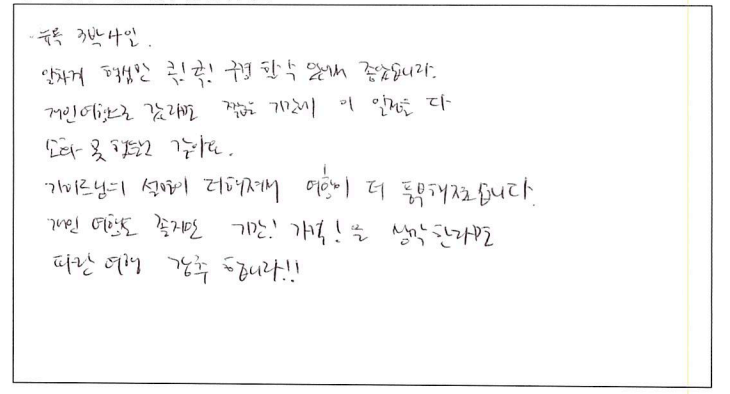 뉴욕 3박4일.
알차게 핵심만 콕! 콕! 구경 할 수 있어 좋았습니다.
개인여행으로 갔다면 짧은 기간에 이 일정을 다
소화 못 했을것 같아요.
가이드님의 설명이 더해져서 여행이 더 풍부해졌습니다.
개인 여행도 좋지만 기간! 가격!을 생각한다면
파란 여행 강추 합니다!!